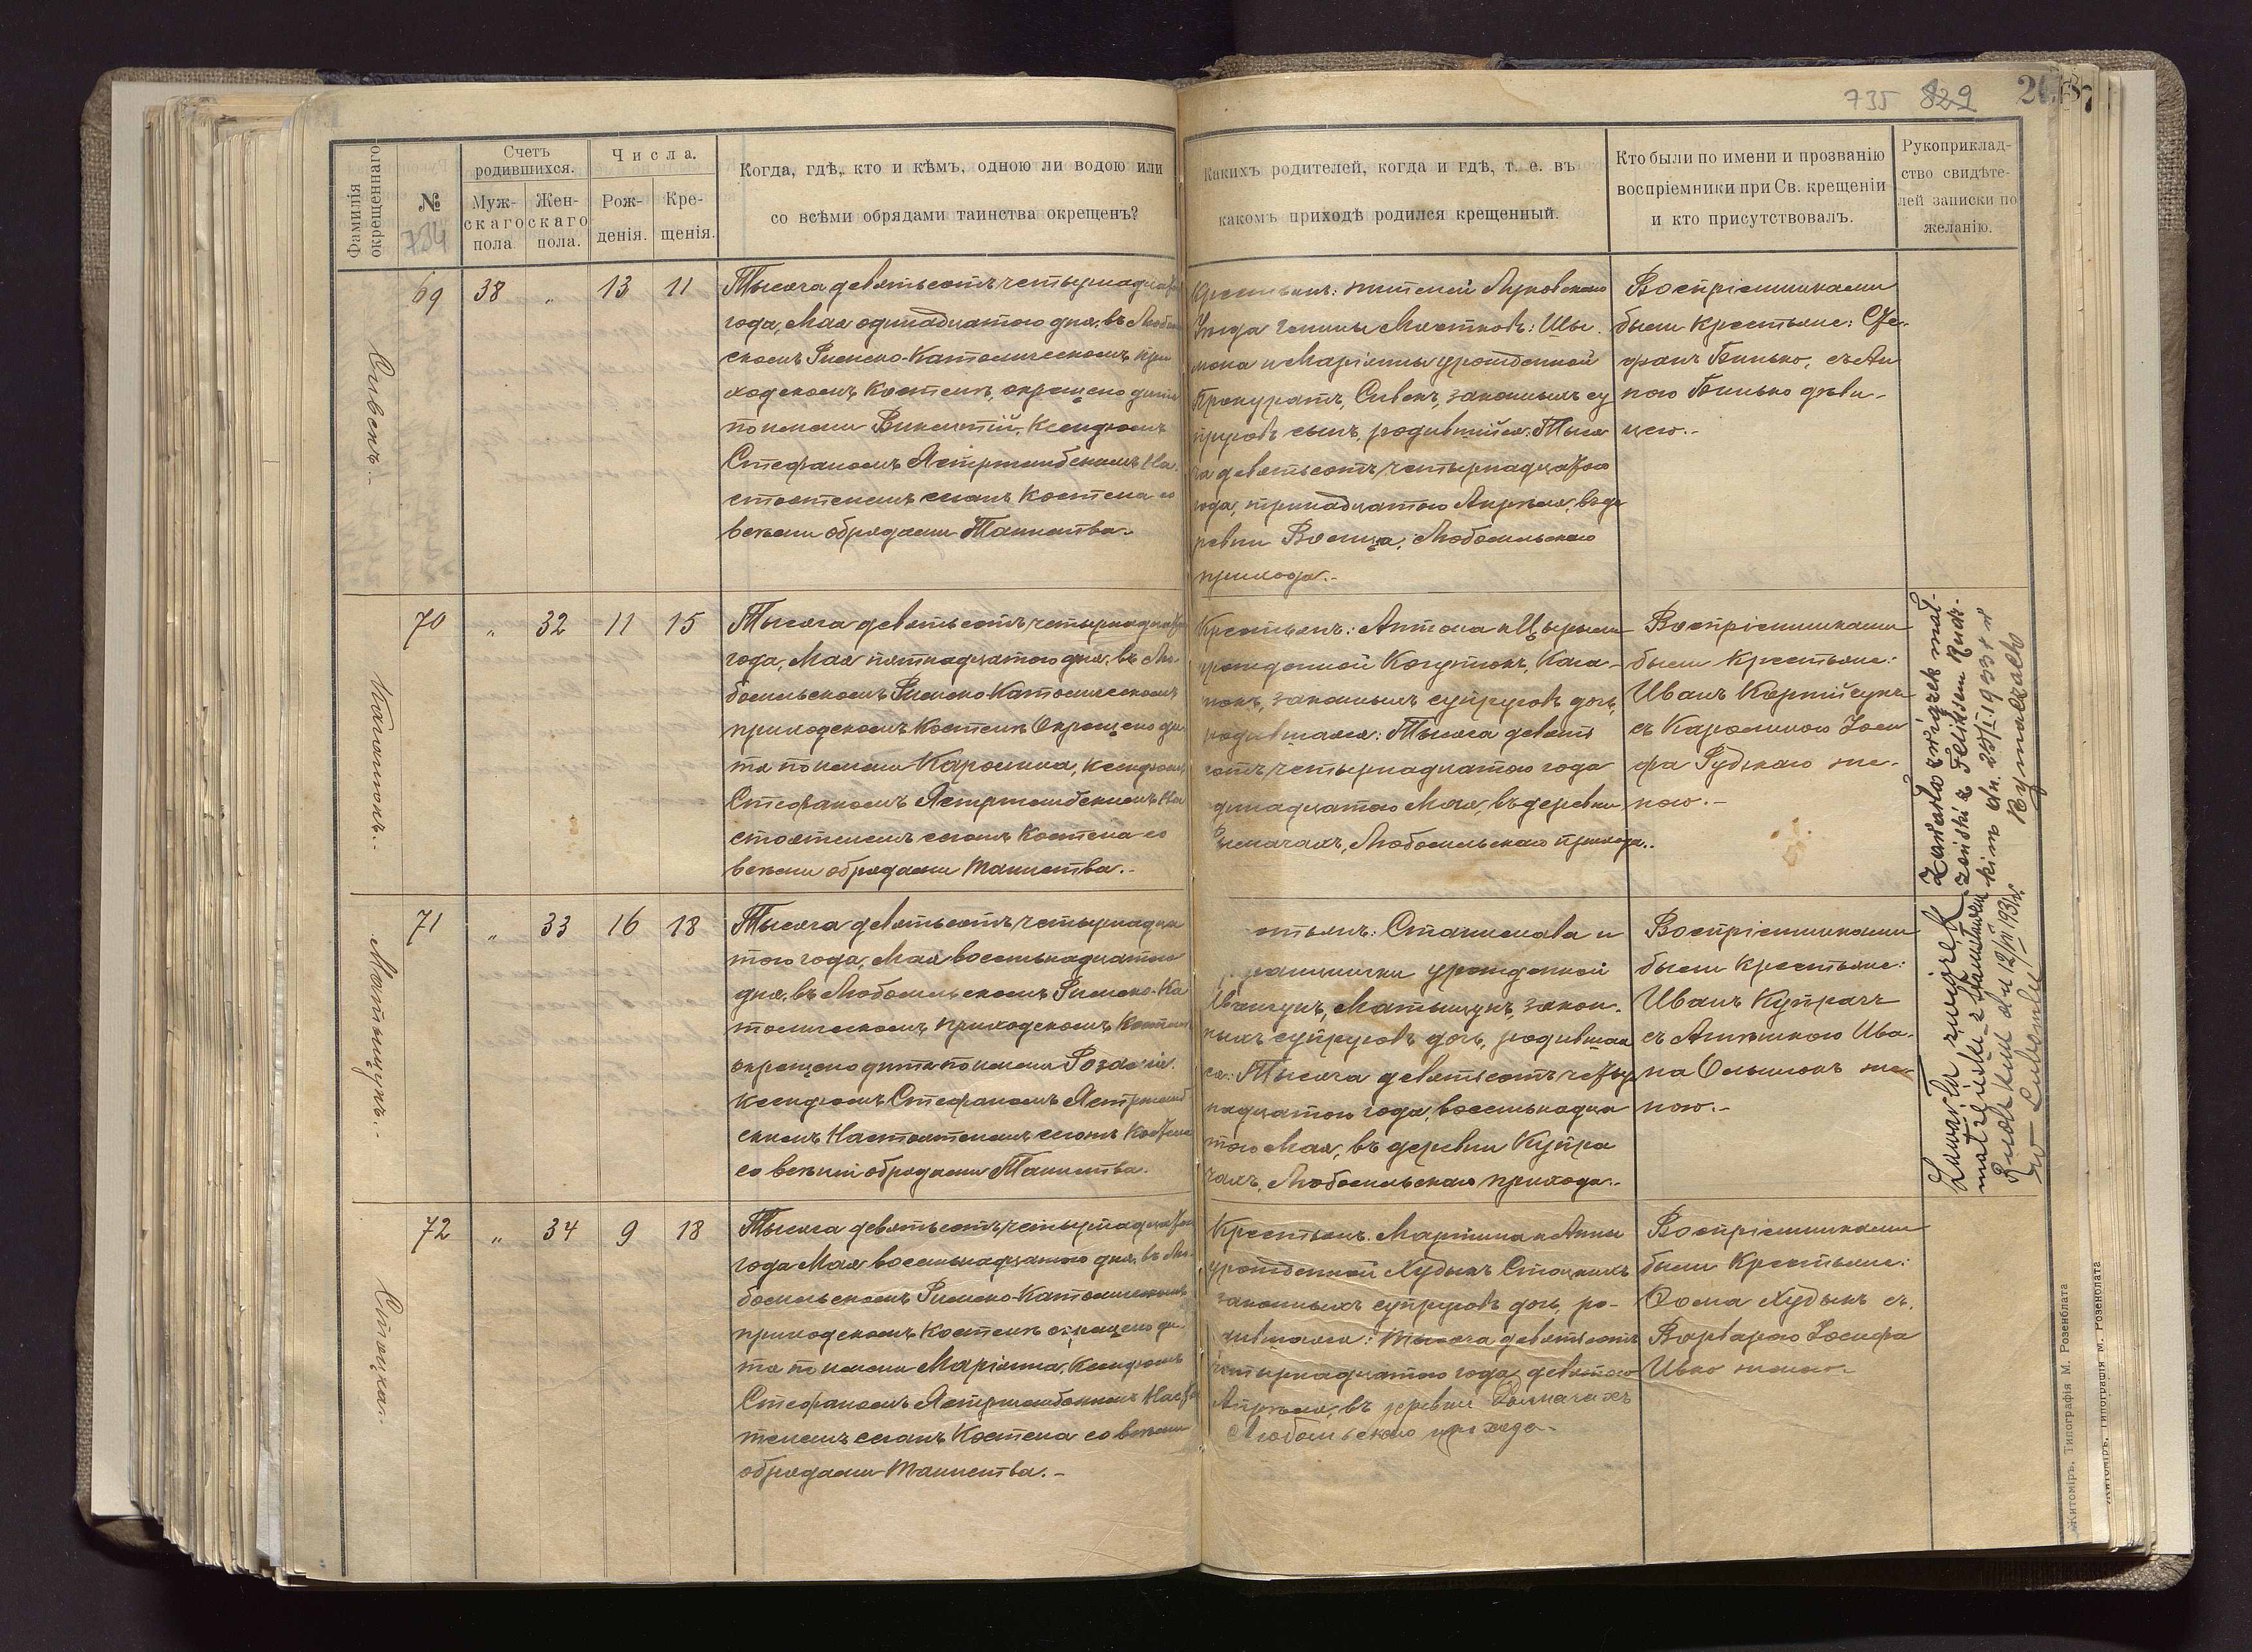 735 829
Фамилія окрещеннаго
№
734
Счетъ родившихся.
Мужскаго пола
Женскаго пола.
Числа.
Рожденія.
Крещенія.
Когда, гдѣ, кто и кѣмъ, одною ли водою или
со всѣми обрядами таинства окрещенъ?
Какихъ родителей, когда и гдѣ, т. е. въ
какомъ приходѣ родился крещенный.
Кто были по имени и прозванію
воспріемники при Св. крещеніи
и кто присутствовалъ.
Рукоприклад-
ство свидѣте-
лей записки по
желанію.
Сивекъ.
69 38 „ 13 11
Тысяча девятьсотъ четырнадцатаго
года, Мая одинадцатого дня, въ Любом
скомъ Римско-Католическомъ при
ходскомъ Костелѣ, окрещено дитя
по имени Викентій, Ксендзомъ
Стефаномъ Ястржембскимъ На
стоятелемъ сего Костела со
всѣми обрядами Таинства.
Крестьянъ: жителей Луковскаго
Уѣзда гмины Мястковъ: Шы
мона и Маріанны урожденной
Прокуратъ, Сивекъ, законныхъ су
пруговъ сынъ, родившійся: Тыся
ча девятьсотъ четырнадцатого
года, тринадцатого Апрѣля, въ де
ревни Волица, Любомльскаго
прихода.
Воспріемниками
были Крестьяне: Сте-
фанъ Бинько, съ Ан
ною Бинько дѣви-
цею.
70 „ 32 11 15
Тысяча девятьсотъ четырнадцатаго
года, Мая пятнадцатого дня, въ Лю-
бомльскомъ Римско-Католическомъ
приходскомъ Костелѣ Окрещено ди
тя по имени Каролина, Ксендзомъ
Стефаномъ Ястржембскимъ На
стоятелемъ сего Костела со
всѣми обрядами таинства.
урожденной Когутюкъ,
законныхъ супруговъ дочь,
родившаяся: Тысяча девять
сотъ четырнадцатого года
динадцатого Мая, въ деревни
Рымачахъ, Любомльскаго прихода.
Воспріемниками
были Крестьяне:
Иванъ
съ Каролиною Іоси
фа Рудскаго же-
ною.
Zawarła związek mał-
żeński z Feliksem Rudz-
kim dn. 25/I. 1933 r.
Rymaczach
Матыщукъ.
71 „ 33 16 18
Тысяча девятьсотъ четырнадца
того года, Мая восемьнадцатого
дня, въ Любомльскомъ Римско-Ка
толическомъ приходскомъ Костелѣ
окрещено дитя по имени Розалія
Ксендзомъ Стефаномъ Ястржемб
скимъ Настоятелемъ сего Костела
со всѣми обрядами Таинства.
стьянъ: Станислава и
урожденной
законныхъ супруговъ дочь, родившая
ся: Тысяча девятьсотъ четыр
надцатого года, восемьнадца
того Мая, въ деревни Купра
чахъ, Любомльскаго прихода.
Воспріемниками
были Крестьяне:
Иванъ Купрачъ
съ Ива-
на же-
ною.
Zawarła związek
małżeński z Stanisławem
Rudzkim dn 12/ 1931 r.
w Lubomlu
Стоцка.
72 „ 34 9 18
Тысяча девятьсотъ четырнадцатаго
года Мая восемьнадцатого дня, въ Лю-
бомльскомъ Римско-Католическомъ
приходскомъ Костелѣ окрещено ди-
тя по имени Маріанна, Ксендзомъ
Стефаномъ Ястржембскимъ Настоя
телемъ сего Костела со всѣми
обрядами Таинства.
Крестьянъ: Мартина и Анны
урожденной Худыкъ Стоцкихъ
законныхъ супруговъ дочь, ро-
дившаяся: тысяча девятьсотъ
четырнадцатого года, девятого
Апрѣля, въ деревни Рымачахъ
Любомльскаго прихода.
Воспріемниками
были Крестьяне:
Ѳома Худыкъ съ
Варварою Іосифа
Ивко женою.
Житоміръ, Типографія М. Розенблата
Житоміръ, Типографія М. Розенблата